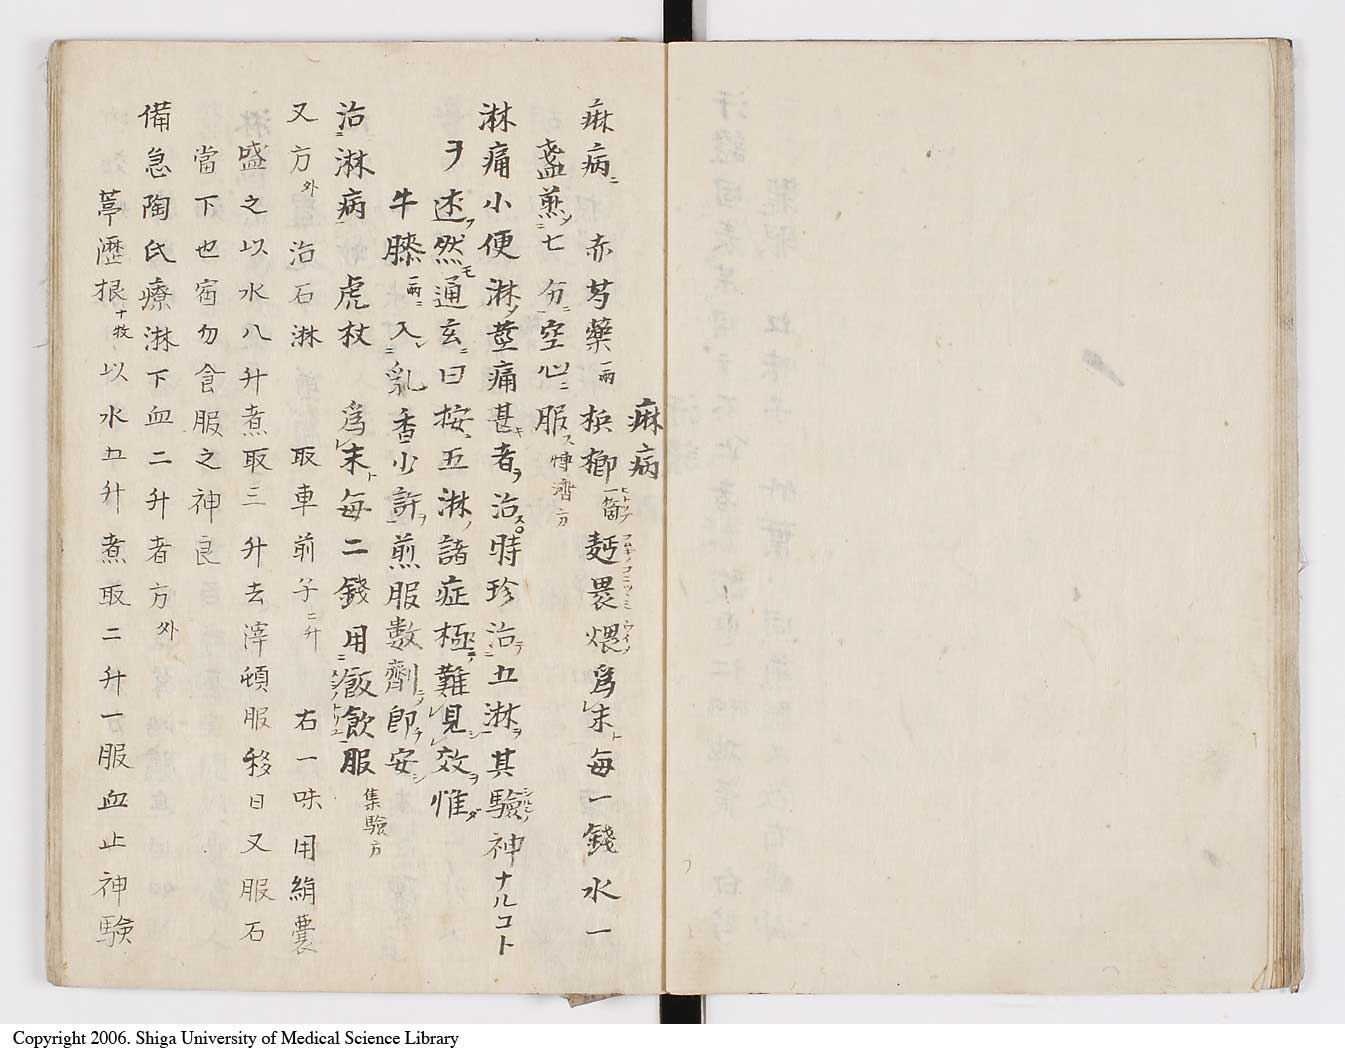 痳病
痳病ニ赤芍藥一兩梹榔一箇ヒトツ麫畏煨爲末ト毎一錢水一
盞煎ノ七分ニ空心ニ服ス博濟方
淋痛小便淋ノ莖痛甚キ者ヲ治スロ時珍治テ五淋ヲ其驗シルシノ神ナルコト
ヲ述フ然モ通玄ニ曰按ニ五淋ノ諸症極テ難レ見レシ效ヲ惟ダ
牛膝一兩ニ入ン乳香少許ヲ煎服數劑ニノ即チ安シ
治ニ淋病虎杖　爲レ末ト毎二錢用ニ飯飲服　集驗方
又方外治石淋　取車前子二升　右一味用絹囊
盛之以水八升煮取三升去滓頓服移日又服石
當下也宿勿食服之神良
備急陶氏療淋下血二升者方外
葶瀝根十枚以水五升煮取二升一服血止神験
Copyright 2006. Shiga University of Medical Science Library